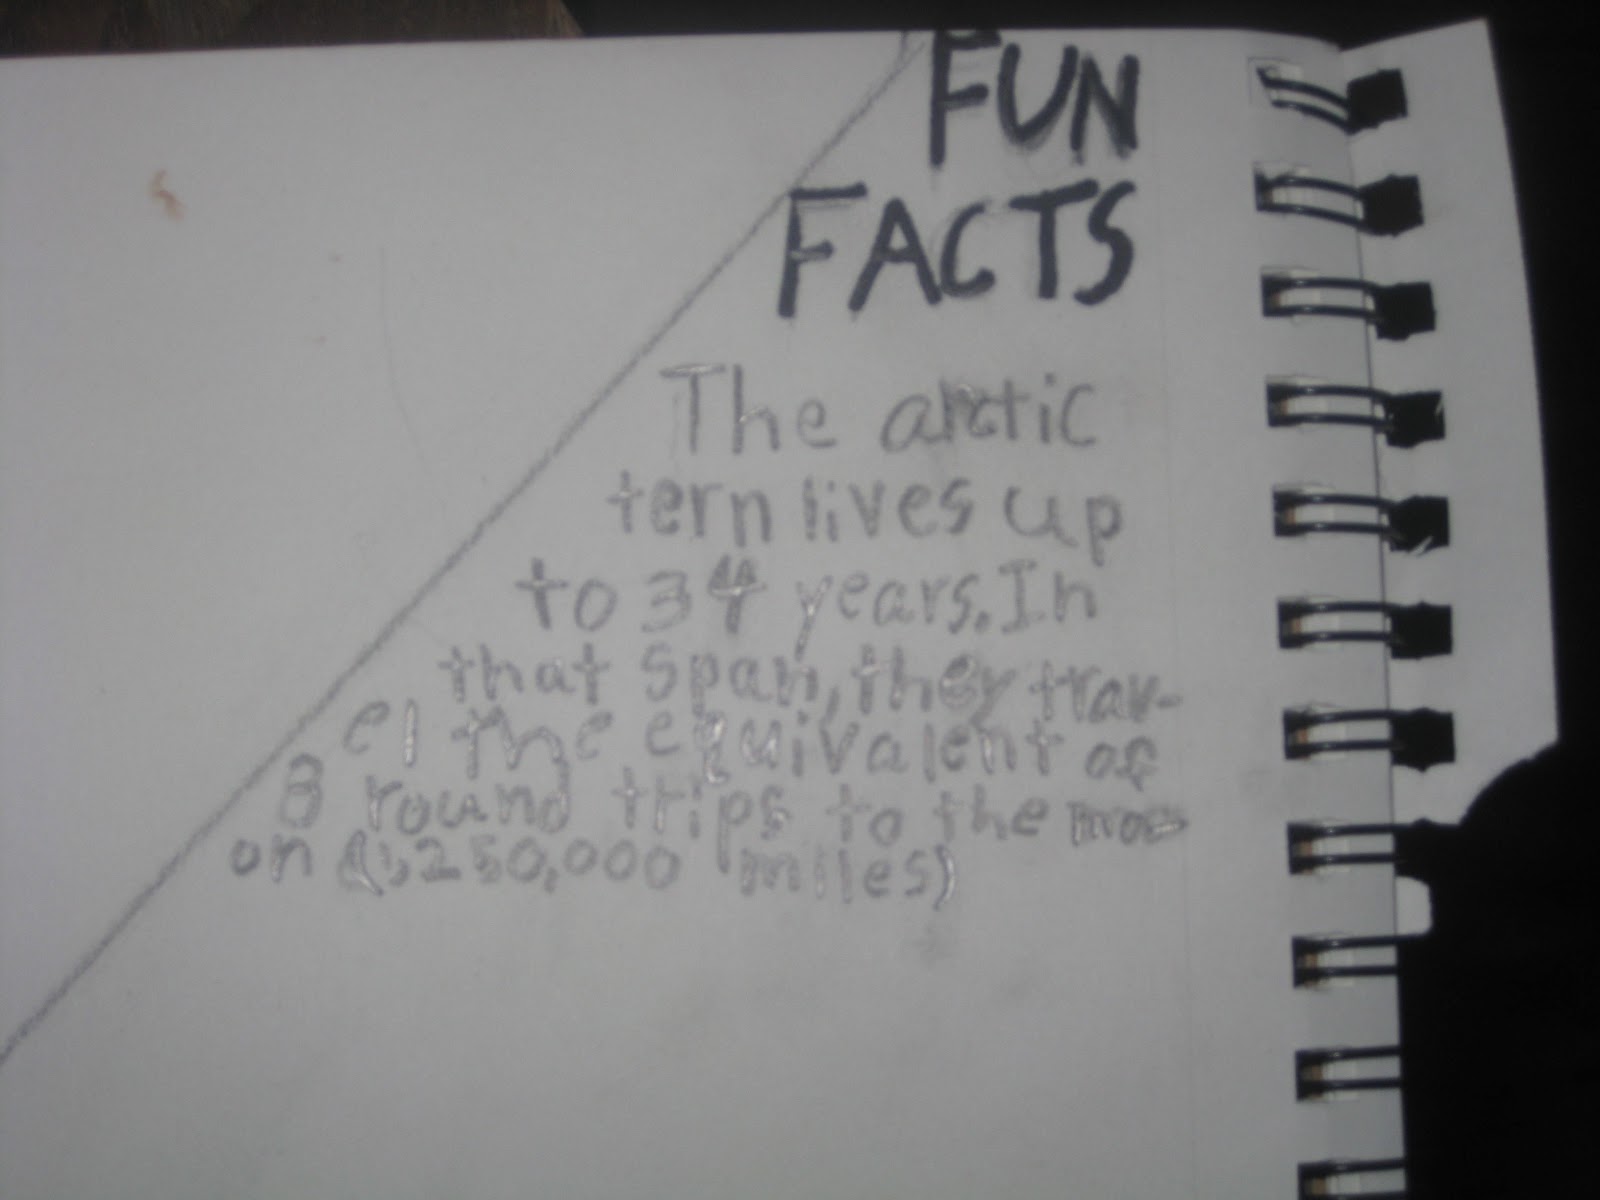 FUN
FACTS
The arctic
tern lives up
to 34 years. In
that span, they trav-
el the equivalent of
3 round trips to the mo
on (1,250,000 miles)